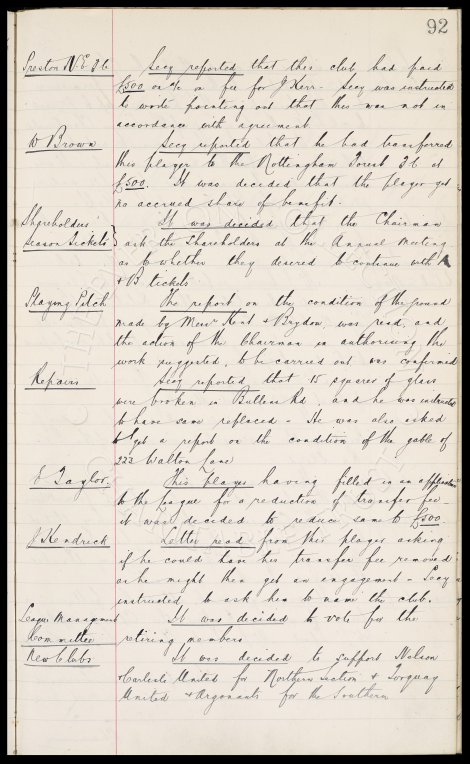 92
Preston N.E. Fc
Secy reported that this club had paid
£500 on a/c on fee for J Kerr - Secy was instructed
to wrote pointing out that this was not in
accordance with agreement
W Brown
Secy reported that he had transferred
this player to the Nottingham Forest F.C at
£500. It was decided that the player get
no accrued share of benefit.
Shareholders'
Season Tickets
It was decided that the Chairman
ask the Shareholders at the Annual Meeting
as to whether they desired to continue with A
& B tickets
Playing Pitch
The report on the condition of the ground
made by Messrs Kent & Brydon, was read, and
the action of the Chairman in authorising the
work suggested, to be carried out was confirmed
Repairs
Secy reported, that 15 squares of glass
were broken in Bullens Rd, and he was instructed
to have same replaced - He was also asked
to get a report on the condition of the gable of
222 Walton Lane
E Taylor.
This player having filled in an application
to the League for a reduction of transfer fee
it was decided to reduce same to £500
J Kendrick
Letter read from this player asking
if he could have his transfer fee removed
as he might then get an engagement - Secy
instructed to ask him to name the club.
League Management
Committee
It was decided to vote for the
retiring members
New Clubs
It was decided to support Nelson
& Carlisle United for Northern Section & Torquay
United & Argonauts for the Southern